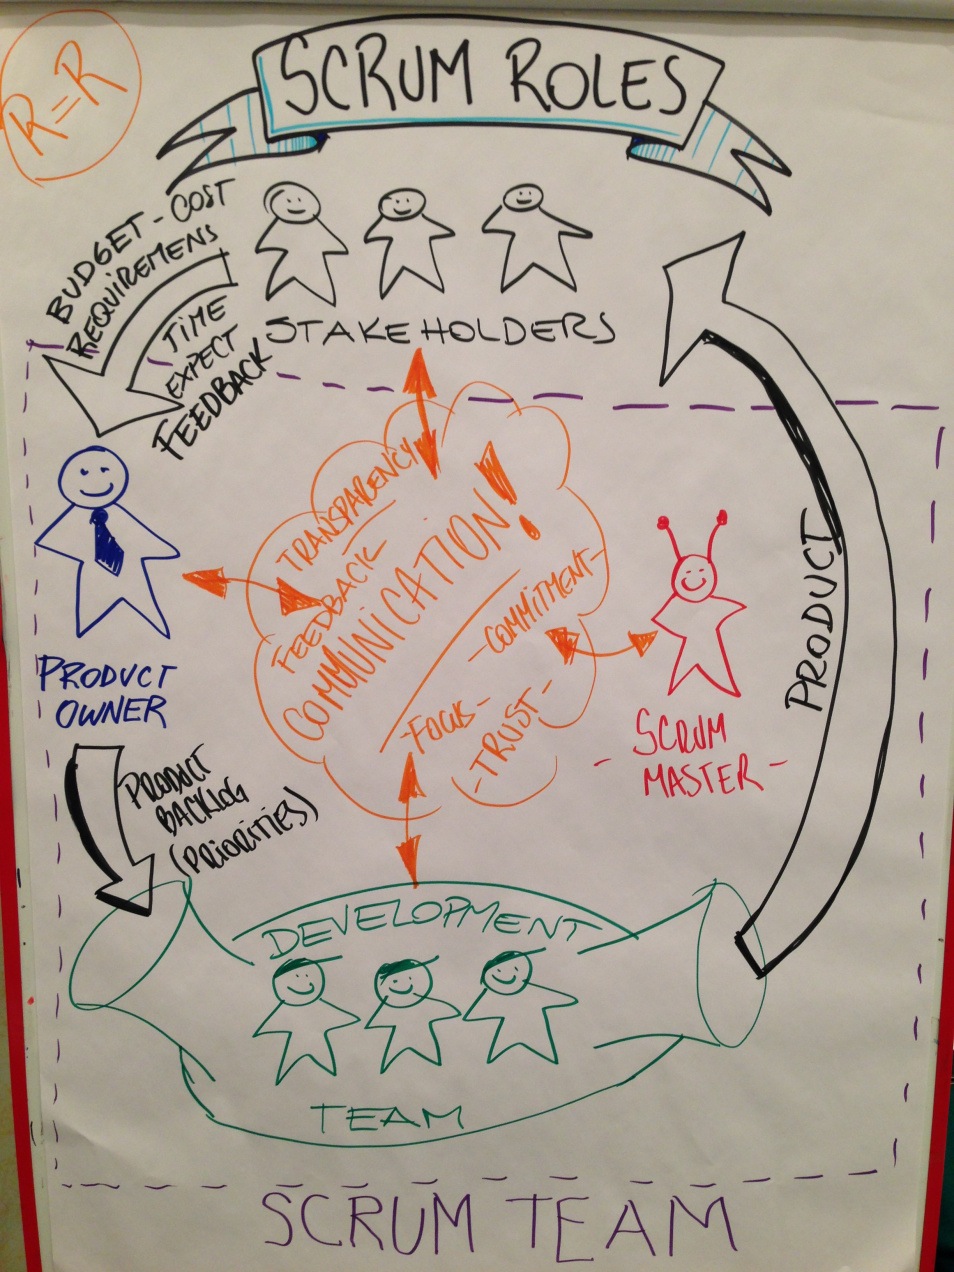 R=R
SCRUM ROLES
BUDGET - COST
REQUIREMENS
TIME
EXPECT
FEEDBACK
STAKEHOLDERS
TRANSPARENCY
FEEDBACK
COMMUNICATION!
-COMMITMENT-
-FOCUS-
-TRUST-
PRODUCT
OWNER
- SCRUM
MASTER -
PRODUCT
PRODUCT
BACKLOG
(PRIORITIES)
DEVELOPMENT
TEAM
SCRUM TEAM